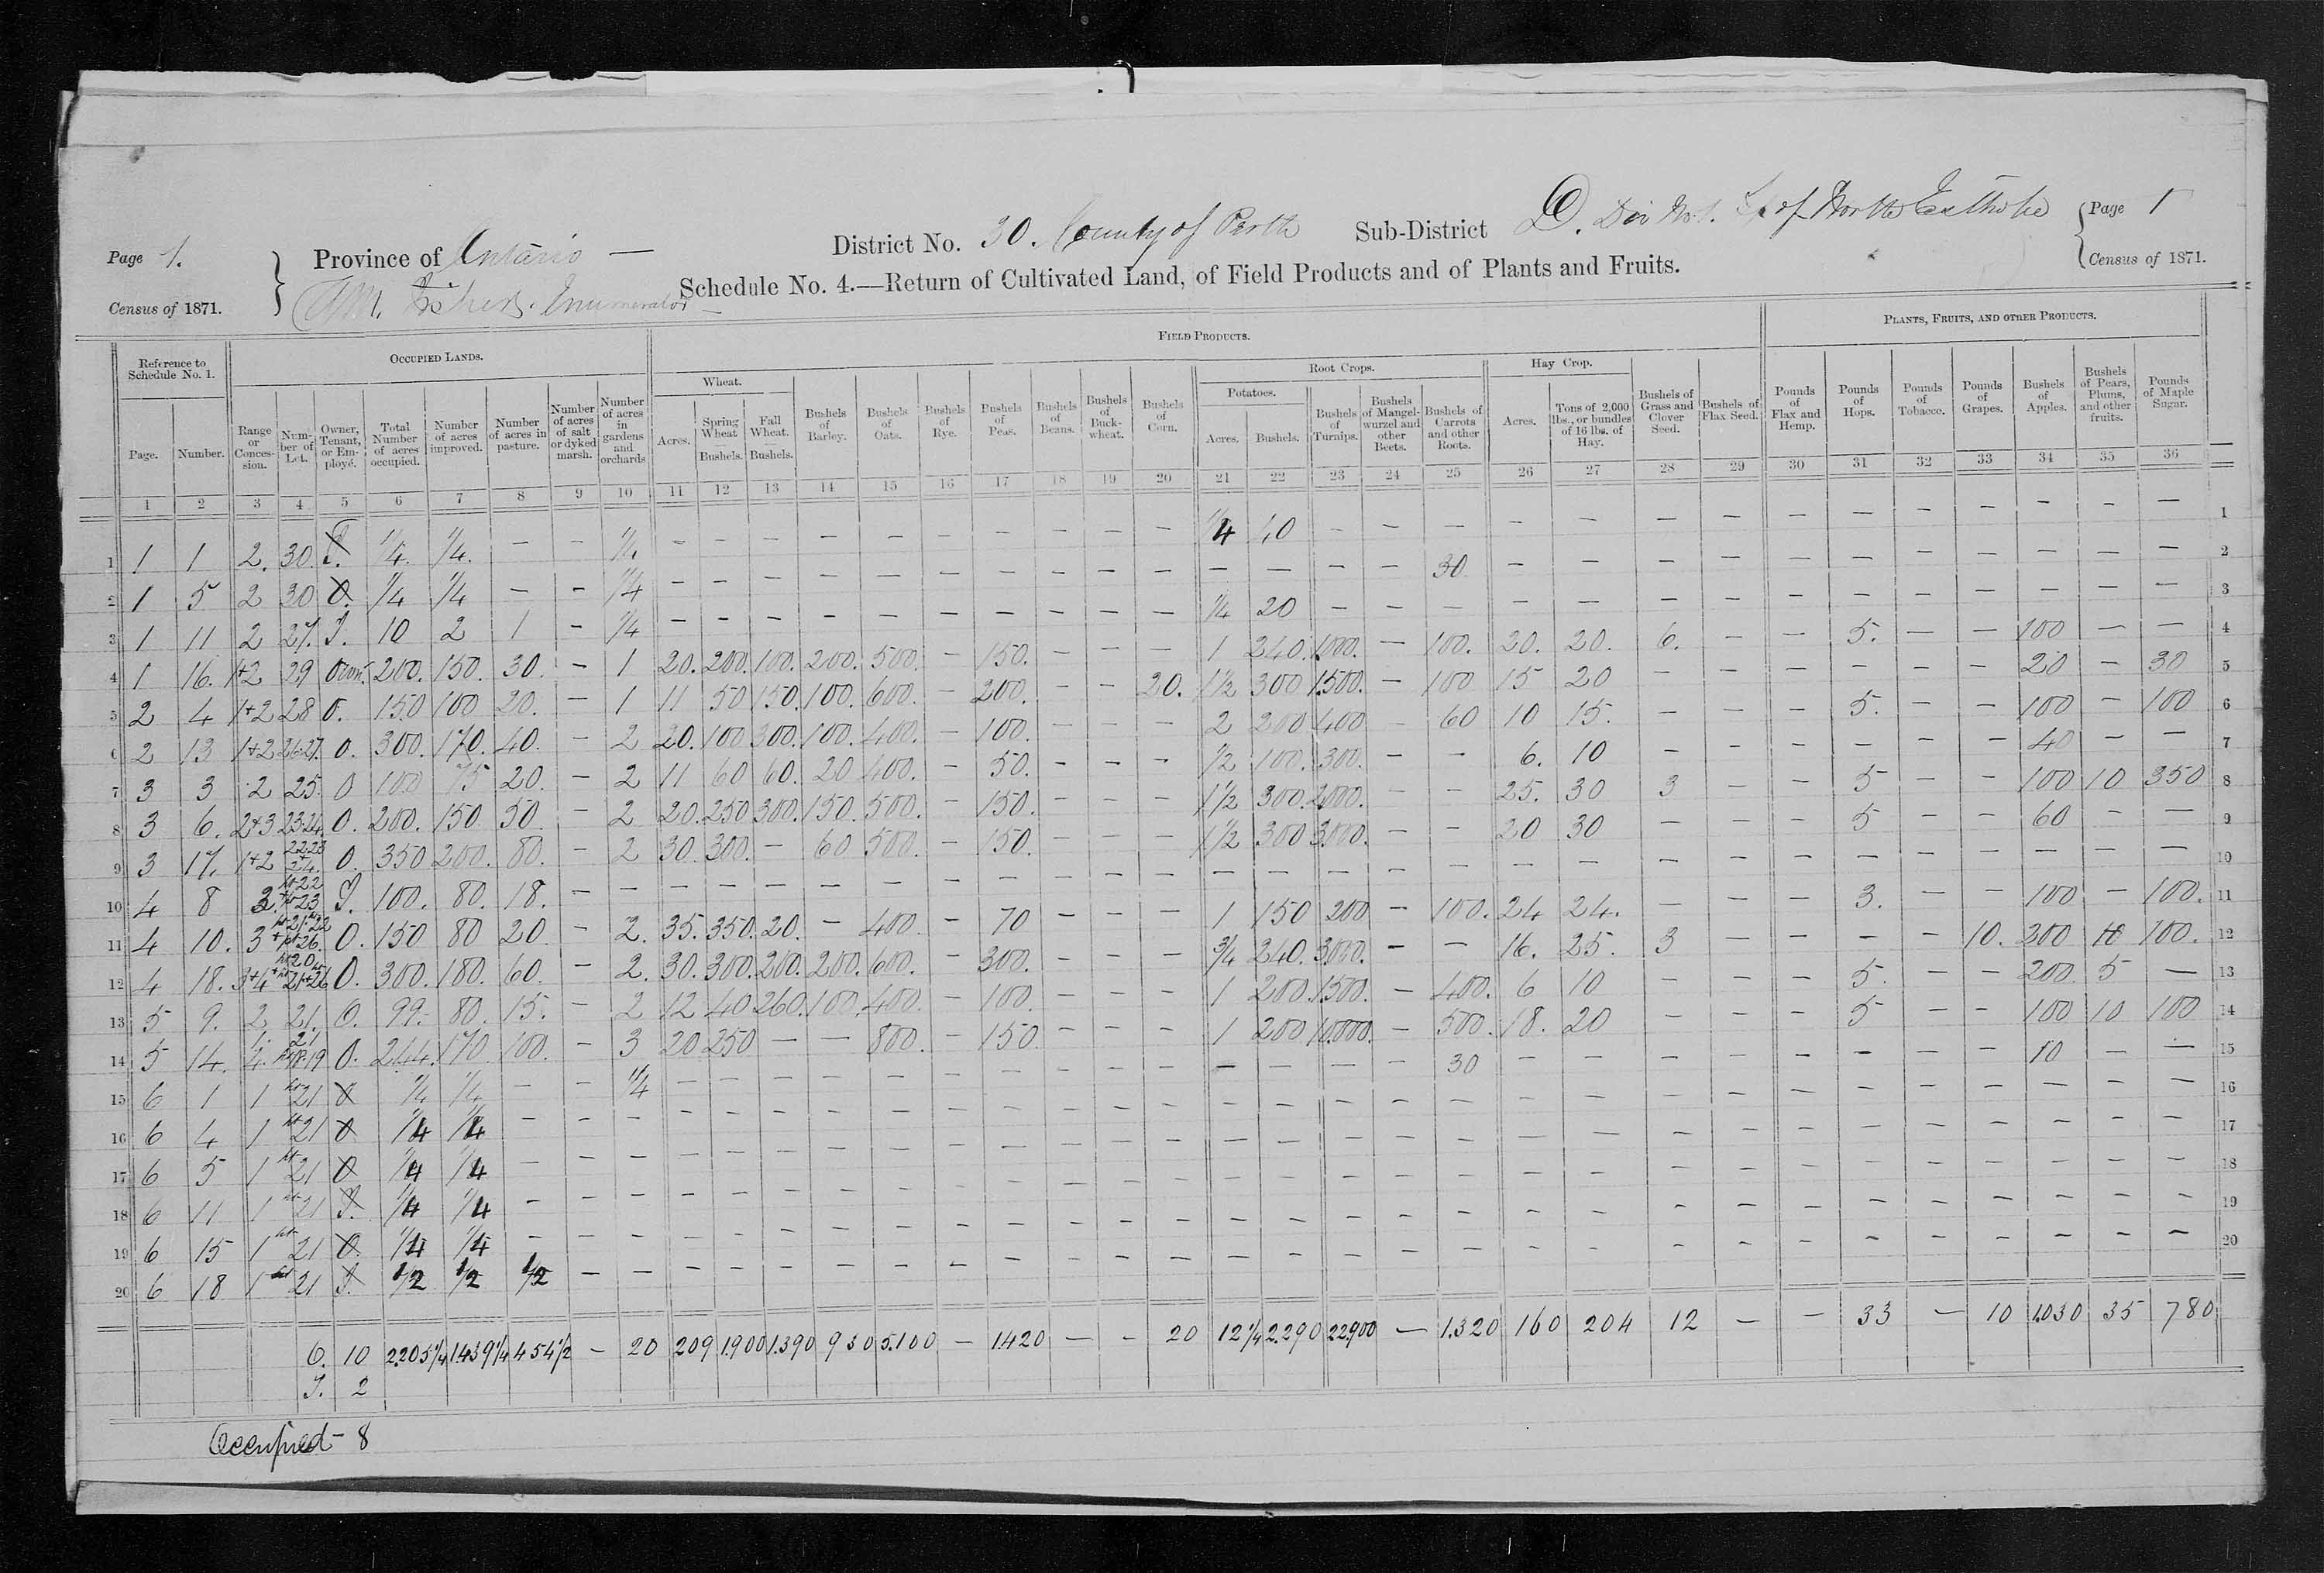 Page 1.
Census of 1871.
Province of Ontario —
Enumerator —
District No. 30. County of Perth Sub-District D. Div No 1. Tp of North Easthope
Page 1
Census of 1871.
Schedule No. 4.—Return of Cultivated Land, of Field Products and of Plants and Fruits.
Reference to Schedule No. 1. OCCUPIED LANDS. FIELD PRODUCTS. PLANTS, FRUITS, AND OTHER PRODUCTS.
Wheat. Root Crops. Potatoes. Hay Crop.
Page. Number. Range or Conces-sion. Num-ber of Lot. Owner, Tenant, or Em-ployé. Total Number of acres occupied. Number of acres improved. Number of acres in pasture. Number of acres of salt or dyked marsh. Number of acres in gardens and orchards Acres. Spring Wheat — Bushels. Fall Wheat. Bushels. Bushels of Barley. Bushels of Oats. Bushels of Rye. Bushels of Peas. Bushels of Beans. Bushels of Buck-wheat. Bushels of Corn. Acres. Bushels. Bushels of Turnips. Bushels of Mangel-wurzel and other Beets. Bushels of Carrots and other Roots. Acres. Tons of 2,000 lbs., or bundles of 16 lbs. of Hay. Bushels of Grass and Clover Seed. Bushels of Flax Seed. Pounds of Flax and Hemp. Pounds of Hops. Pounds of Tobacco. Pounds of Grapes. Bushels of Apples. Bushels of Pears, Plums, and other fruits. Pounds of Maple Sugar.
1 2 3 4 5 6 7 8 9 10 11 12 13 14 15 16 17 18 19 20 21 22 23 24 25 26 27 28 29 30 31 32 33 34 35 36
1 1 1 2. 30. T. 1/4. 1/4. — — 1/4 — — — — — — — — — — 1/4 10 — — — — — — — — — — — — — — 1
2 1 5 2 30 O. 1/4 1/4 — — 1/4 — — — — — — — — — — — — — — 30 — — — — — — — — — — — 2
3 1 11 2 27. T. 10 2 1 — 1/4 — — — — — — — — — — 1/4 20 — — — — — — — — — — — — — — 3
4 1 16. 1+2 29 Own. 200. 150. 30. — 1 20. 200. 100. 200. 500. — 150. — — — 1 240. 1000. — 100. 20. 20. 6. — — 5. — — 100 — — 4
5 2 4 1+2 28 O. 150 100 20. — 1 11 50 150. 100. 600. — 200. — — 20. 1 1/2 300 1.500. — 100 15 20 — — — — — — 20 — 30 5
6 2 13 1+2 26.27. O. 300. 170. 40. — 2 20. 100 300. 100. 400. — 100. — — — 2 200 400 — 60 10 15. — — — 5. — — 100 — 100 6
7 3 3 2 25. O 100 75 20. — 2 11 60 60. 20 400. — 50. — — — 1/2 100. 300. — — 6. 10 — — — — — — 40 — — 7
8 3 6. 2+3 23.24. O. 200. 150 50 2 20. 250 300. 150. 500. — 150. — — — 1 1/2 300. 2000. — — 25. 30 3 — — 5 — — 100 10 350 8
9 3 17. 1+2 22.23 + 24. O. 350 200. 80. — 2 30. 300. — 60 500. — 150. — — — 1 1/2 300 3.000. — — 20 30 — — — 5 — — 60 — — 9
10 4 8 3. pt 22 + pt 23 T. 100. 80. 18. — — — — — — — — — — — — — — — — — — — — — — — — — — — — 10
11 4 10. 3 O. 150 80 20 — 2. 35. 350. 20. — 400. — 70 — — — 1 150 200 — 100. 24 24. — — — 3. — — 100 — 100. 11
12 4 18. 3+4 O. 300. 180. 60. — 2. 30. 300. 200. 200. 600. — 300. — — — 3/4 240. 3.000. — — 16. 25. 3 — — — — 10. 200 10 100. 12
13 5 9. 2 21. O. 99. 80. 15. — 2 12 40 260. 100. 400. — 100. — — — 1 200. 1500. — 400. 6 10 — — — 5. — — 200 5 — 13
14 5 14. O. 244. 170 100. — 3 20 250 — — 800. — 150. — — — 1 200 10.000. — 500. 18. 20 — — — 5 — — 100 10 100 14
15 6 1 1 pt 21 O 1/4 1/4 — — 1/4 — — — — — — — — — — — — — — 30 — — — — — — — — 10 — — 15
16 6 4 1 pt 21 O 1/4 1/4 — — — — — — — — — — — — — — — — — — — — — — — — — — — — — 16
17 6 5 1 pt 21 O 1/4 1/4 — — — — — — — — — — — — — — — — — — — — — — — — — — — — — 17
18 6 11 1 pt 21 T. 1/4 1/4 — — — — — — — — — — — — — — — — — — — — — — — — — — — — — 18
19 6 15 1 pt 21 O. 1/4 1/4 — — — — — — — — — — — — — — — — — — — — — — — — — — — — — 19
20 6 18 1 pt 21 T. 1/2 1/2 1/2 — — — — — — — — — — — — — — — — — — — — — — — — — — — — 20
O. 10 2.205 1/4 1.439 1/4 454 1/2 — 20 209 1.900 1.390 930 5.100 — 1.420 — — 20 12 1/4 2.290 22.900 — 1.320 160 204 12 — — 33 — 10 1.030 35 780
T. 2
Occupied — 8